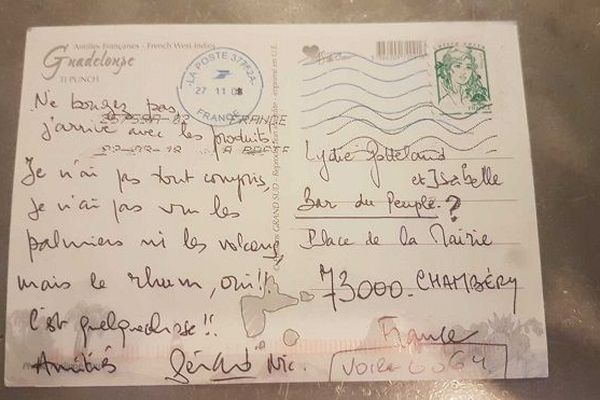 Antilles Françaises - French West Indies
Guadeloupe
TI PUNCH
LA POSTE 37752A
27 11 08
FRANCE
Ne bougez pas,
j'arrive avec les produits.
Je n'ai pas tout compris,
Je n'ai pas vu les
palmiers ni les volcans,
mais le rhum, oui!!
C'est quelquechose!!
Amitiés Gérard Nic.
FRANCE
Lydie Gotteland
et Isabelle
Bar du Peuple ?
Place de la Mairie
73000 - CHAMBÉRY
France
GRAND SUD